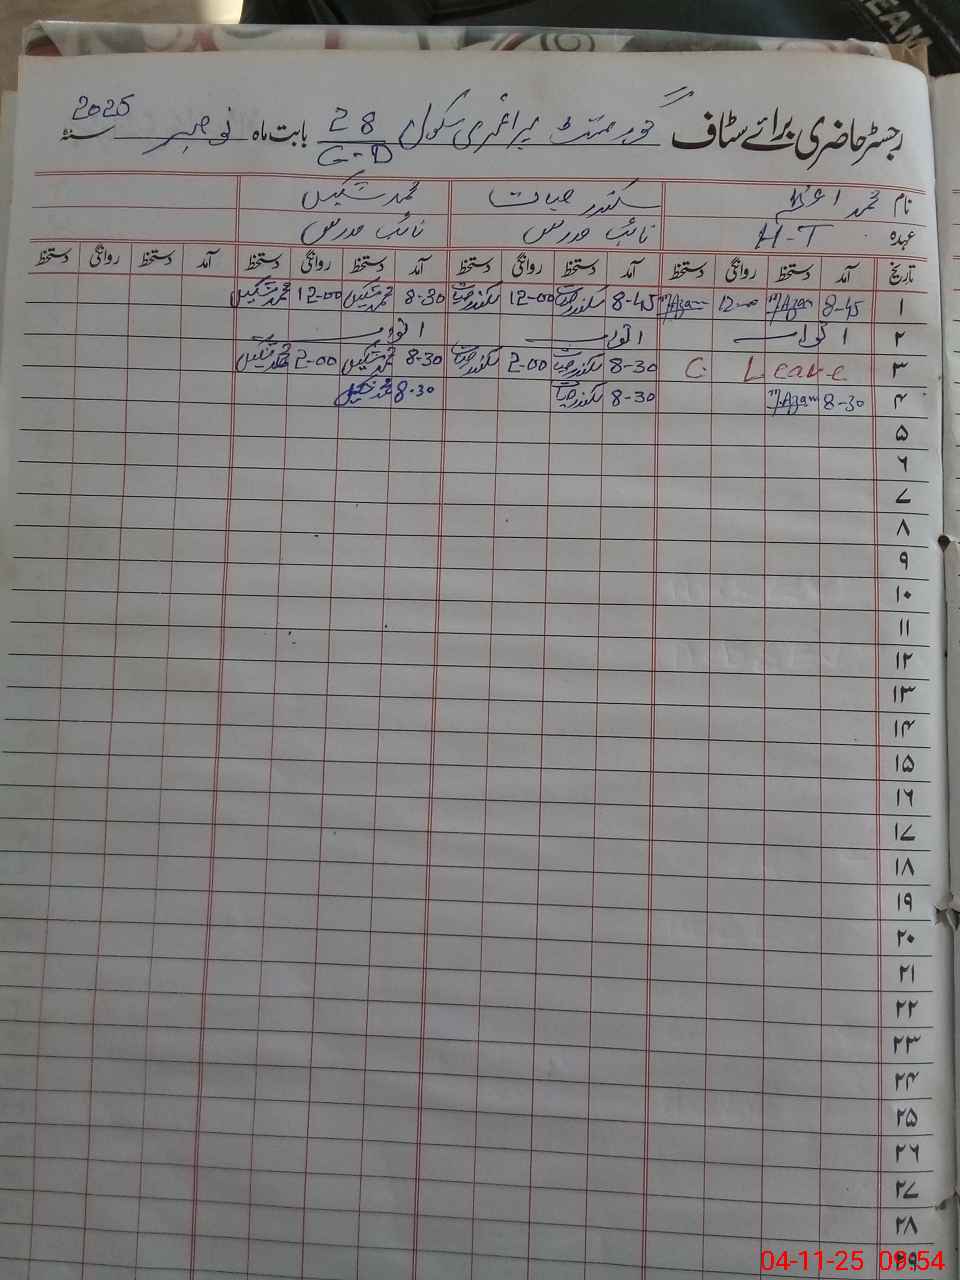 TEAM
رجسٹر حاضری برائے سٹاف گورنمنٹ پرائمری سکول 28/G-D بابت ماہ نومبر سنہ 2025
نام محمد اعظم سکندر حیات محمد شکیل
عہدہ H-T نائب مدرس نائب مدرس
تاریخ آمد دستخط روانگی دستخط آمد دستخط روانگی دستخط آمد دستخط روانگی دستخط آمد دستخط روانگی دستخط
۱ 8-45 M Azam 12-00 M Azam 8-45 سکندر حیات 12-00 سکندر حیات 8-30 محمد شکیل 12-00 محمد شکیل
۲ اتوار اتوار اتوار
۳ C. Leave 8-30 سکندر حیات 2-00 سکندر حیات 8-30 محمد شکیل 2-00 محمد شکیل
۴ 8-30 M Azam 8-30 سکندر حیات 8-30 محمد شکیل
۵
۶
۷
۸
۹
۱۰
۱۱
۱۲
۱۳
۱۴
۱۵
۱۶
۱۷
۱۸
۱۹
۲۰
۲۱
۲۲
۲۳
۲۴
۲۵
۲۶
۲۷
۲۸
۲۹
04-11-25 09:54